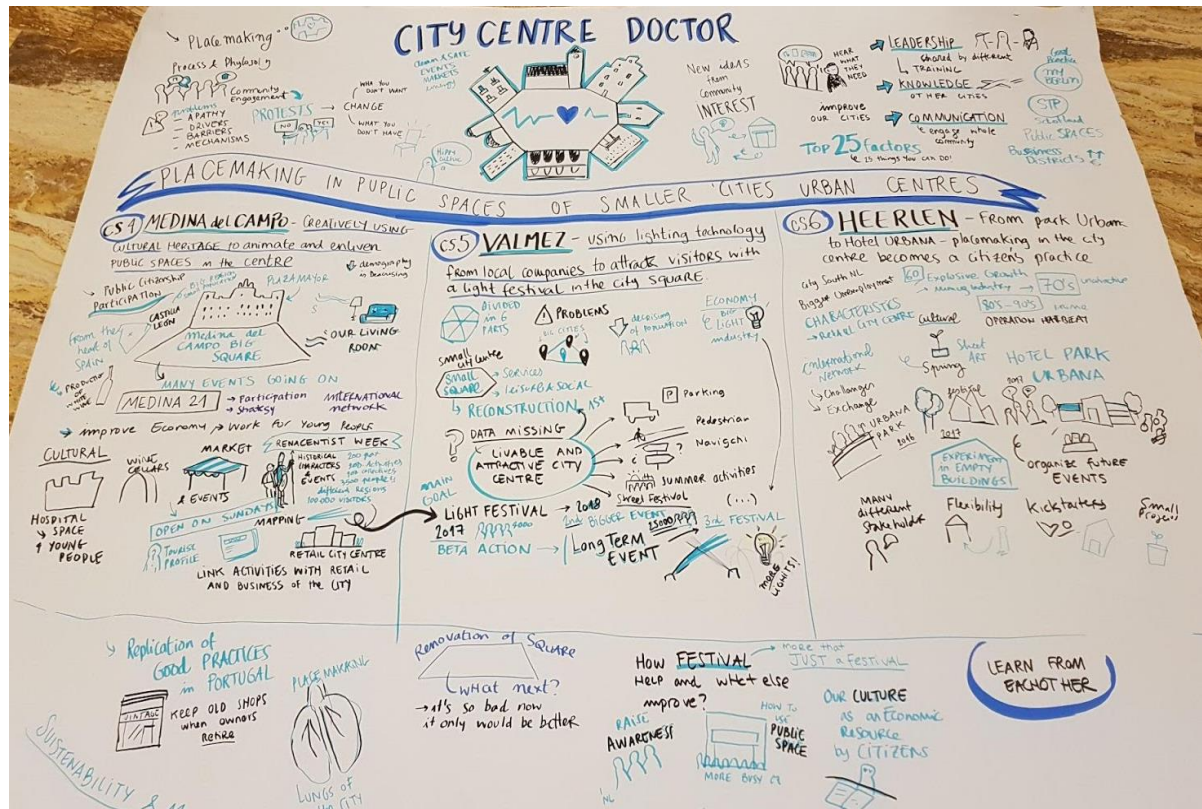 CITY CENTRE DOCTOR
Placemaking
Process & Phylosofy
Community
Engagement
PROBLEMS
APATHY
DRIVERS
BARRIERS
MECHANISMS
PROTESTS
NO
YES
CHANGE
WHAT YOU
DON'T WANT
WHAT YOU
DON'T HAVE
Hippy
Culture
clean & SAFE
EVENTS
MARKETS
New ideas
from
community
INTEREST
HEAR
WHAT
THEY
NEED
improve
OUR CITIES
LEADERSHIP
shared by different
TRAINING
KNOWLEDGE
OTHER CITIES
COMMUNICATION
engage whole
community
TOP 25 factors
25 things you can do!
Good
Practice
my
BERLIN
STP
Scotland
Public SPACES
Bussiness
Districts
PLACEMAKING IN PUPLIC SPACES OF SMALLER CITIES URBAN CENTRES
CS4 MEDINA del CAMPO - CREATIVELY USING
CULTURAL HERITAGE to animate and enliven
PUBLIC SPACES in the CENTRE
demography
is Decreasing
Public Citizenship
Participation
PLAZA MAYOR
CASTILLA
LEÓN
From the
heart of
SPAIN
PRODUCTION
OF
WHITE WINE
medina del
CAMPO BIG
SQUARE
OUR LIVING
ROOM
MANY EVENTS GOING ON
MEDINA 21
Participation
strategy
INTERNATIONAL
network
improve Economy
Work for Young PEOPLE
CULTURAL
HOSPITAL
SPACE
YOUNG
PEOPLE
WINE
CELLARS
MARKET
& EVENTS
RENACENTIST WEEK
HISTORICAL
CHARACTERS
&
EVENTS
different Regions
100.000 VISITORS
OPEN ON SUNDAYS
TOURIST
PROFILE
MAPPING
RETAIL CITY CENTRE
LINK ACTIVITIES WITH RETAIL
AND BUSINESS of the CITY
CS5 VALMEZ - using lighting technology
from local companies to attrakt visitors with
a light festival in the city square
DIVIDED
in 6
PARTS
PROBLEMS
BIG CITIES
ECONOMY
BIG
LIGHT
industry
small
city centre
SMALL
SQUARE
Services
LEISURE & SOCIAL
RECONSTRUCTION
1st
DATA MISSING
LIVABLE AND
ATTRACTIVE CITY
CENTRE
P Parking
Pedestrian
SUMMER activities
Street Festival
(...)
MAIN
GOAL
LIGHT FESTIVAL
2017
BETA ACTION
2018
2nd BIGGER EVENT
25000
Long Term
EVENT
3rd FESTIVAL
more
LIGHTS!
CS6 HEERLEN - From park Urbana
to Hotel URBANA - placemaking in the city
centre becomes a citizens practice
City South NL
Bigger Unemployment
CHARACTERISTICS
Retail CITY CENTRE
60
Explosive Growth
Mining industry
70's
80's - 90's
OPERATION HEARTBEAT
Cultural
Spring
Street
ART
International
network
Challenges
Exchange
URBANA
PARK
2016
festival
2017
HOTEL PARK
URBANA
2017
EXPERIMENT
in EMPTY
BUILDINGS
organize future
EVENTS
MANY
different
stakeholder
Flexibility
Kickstarters
Small
Projects
Replication of
Good PRACTICES
in PORTUGAL
VINTAGE
KEEP OLD SHOPS
when owners
retire
PLACEMAKING
LUNGS of
the CITY
Renovation of SQUARE
what next?
it's so bad now
it only would be better
How FESTIVAL
HELP and what else
improve?
more that
JUST a FESTIVAL
RAISE
AWARENESS
NL
HOW TO
USE
PUBLIC
SPACE
MORE BUSY CC
OUR CULTURE
as an Economic
Resource
by CITIZENS
LEARN FROM
EACHOTHER